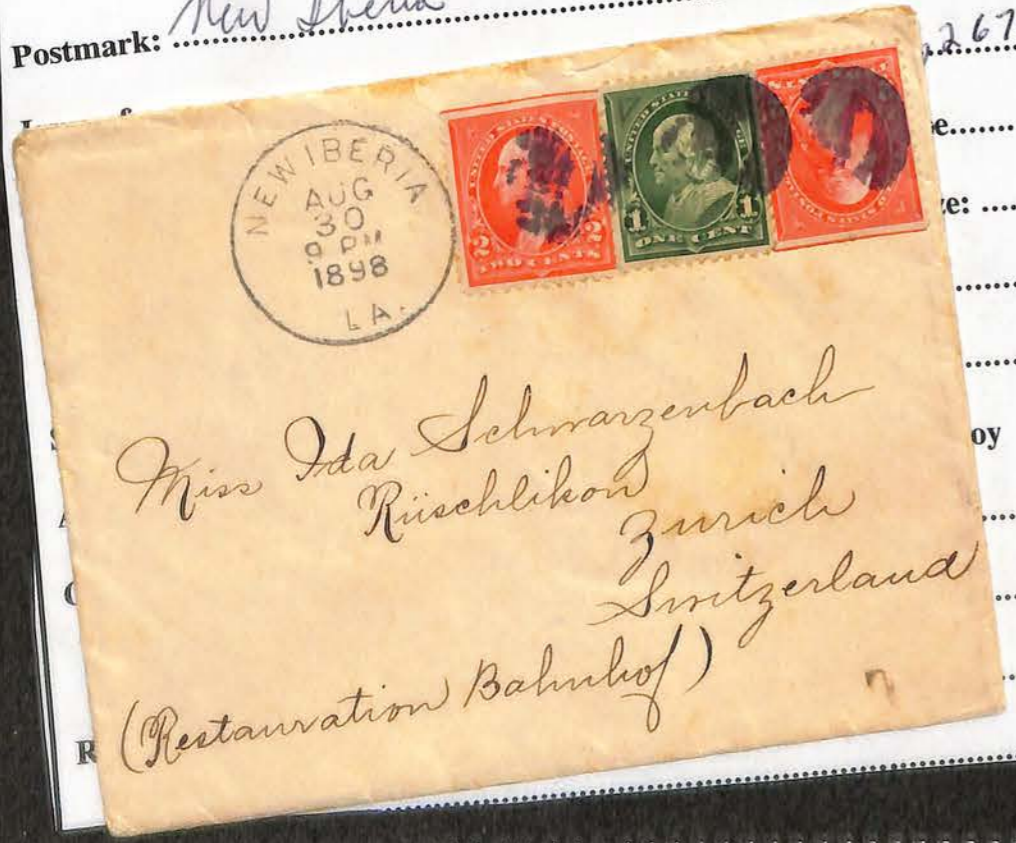 Postmark: New Iberia
267
NEW IBERIA
AUG
30
9 PM
1898
LA.
UNITED STATES POSTAGE
2 2
TWO CENTS
1 1
ONE CENT
Miss Ida Schwarzenbach
Rüschlikon
Zurich
Switzerland
(Restauration Bahnhof)